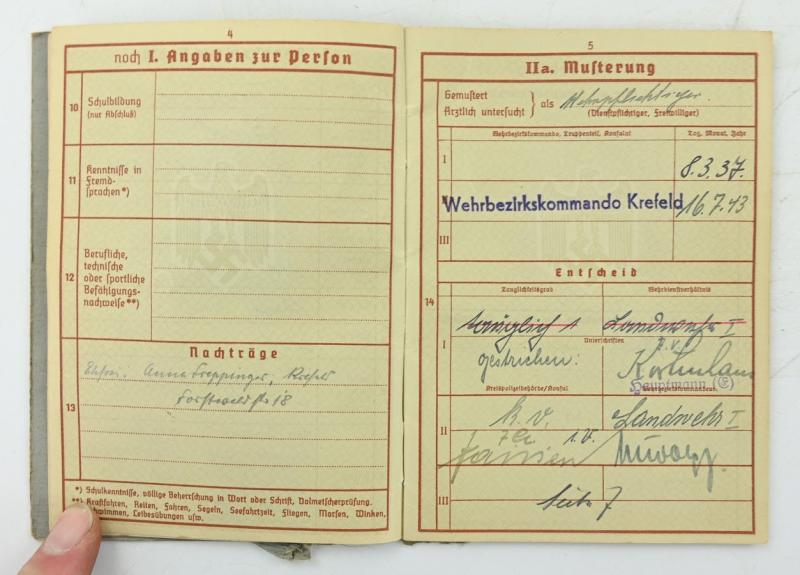 4
noch I. Angaben zur Person
10
Schulbildung
(nur Abschluß)
11
Kenntnisse in
Fremd-
sprachen*)
12
Berufliche,
technische
oder sportliche
Befähigungs-
nachweise**)
13
Nachträge
Anna Treppinger, Krefeld
*) Schulkenntnisse, völlige Beherrschung in Wort oder Schrift, Dolmetscherprüfung.
**) Kraftfahren, Reiten, Fahren, Segeln, Seefahrtzeit, Fliegen, Morsen, Winken,
Schwimmen, Leibesübungen usw.
5
IIa. Musterung
Gemustert
Ärztlich untersucht } als Wehrpflichtiger.
(Dienstpflichtiger, Freiwilliger)
Wehrbezirkskommando, Truppenteil, Konsulat
Tag, Monat, Jahr
I
8.3.37.
Wehrbezirkskommando Krefeld 16.7.43
III
Entscheid
14
Tauglichkeitsgrad
Wehrdienstverhältnis
I
tauglich 1
Landwehr I
Unterschriften
gestrichen:
Hauptmann (E)
Kreispolizeibehörde/Konsul
Wehrbezirkskommandeur
II
k. v.
Landwehr I
i. V.
III
Seite 7